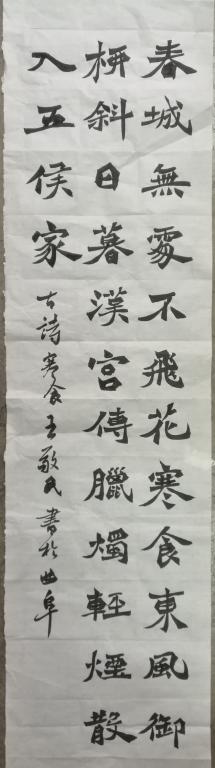 春城無處不飛花寒食東風御
柳斜日暮漢宮傳臘燭輕煙散
入五侯家
古詩寒食王敬民書於曲阜